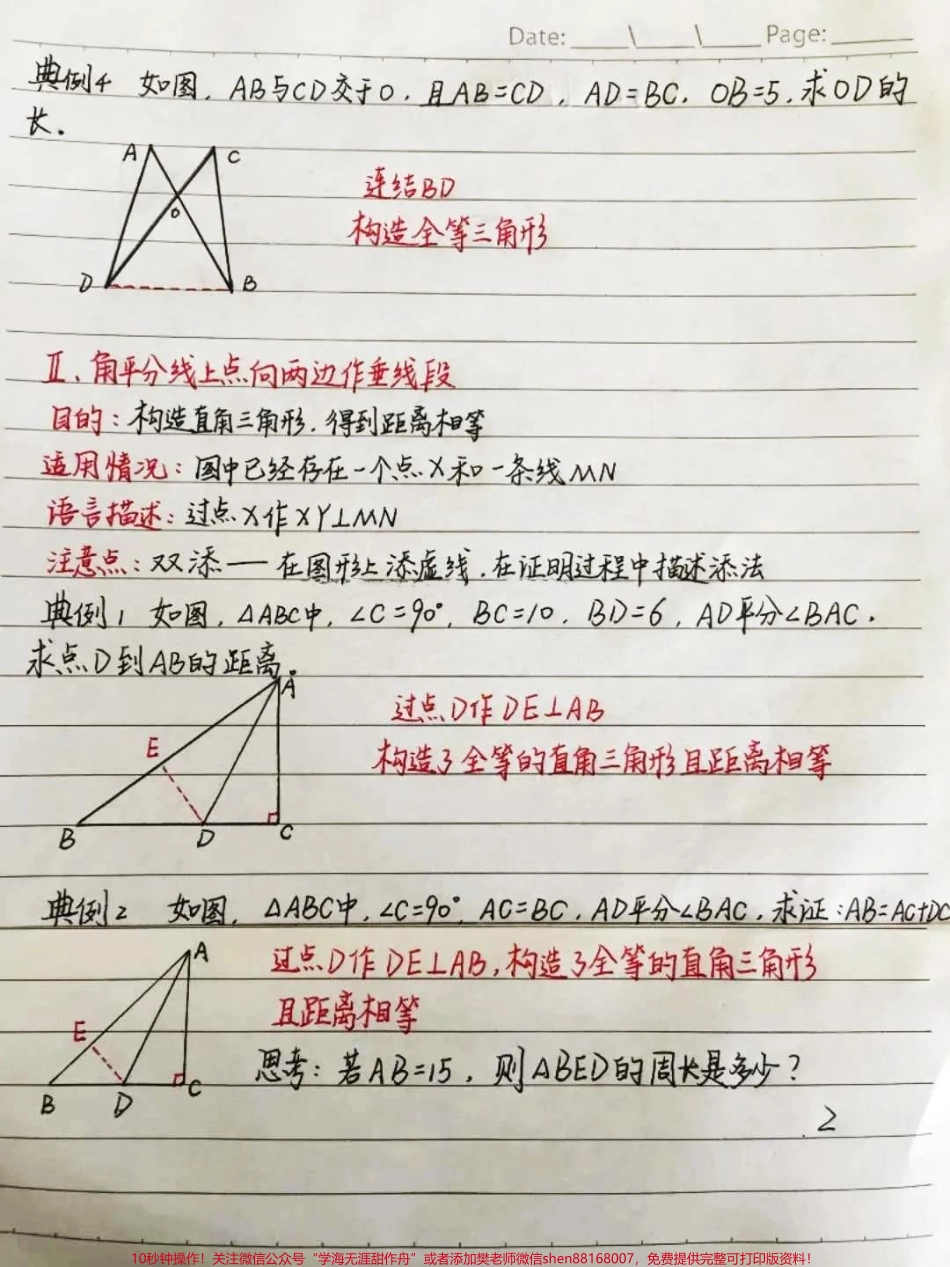 Date: ____\____\____ Page: ______
典例4 如图，AB与CD交于O，且AB=CD，AD=BC，OB=5，求OD的
长．
A C
连结BD
O
构造全等三角形
D B
Ⅱ、角平分线上点向两边作垂线段
目的：构造直角三角形，得到距离相等
适用情况：图中已经存在一个点X和一条线MN
语言描述：过点X作XY⊥MN
注意点：双添——在图形上添虚线，在证明过程中描述添法
典例1 如图，△ABC中，∠C=90°，BC=10，BD=6，AD平分∠BAC．
求点D到AB的距离．
A
过点D作DE⊥AB
E
构造了全等的直角三角形且距离相等
B D C
典例2 如图，△ABC中，∠C=90°，AC=BC，AD平分∠BAC，求证：AB=AC+DC
A
过点D作DE⊥AB，构造了全等的直角三角形
且距离相等
E
思考：若AB=15，则△BED的周长是多少？
B D C
2
10秒钟操作！关注微信公众号“学海无涯甜作舟”或者添加樊老师微信shen88168007，免费提供完整可打印版资料！